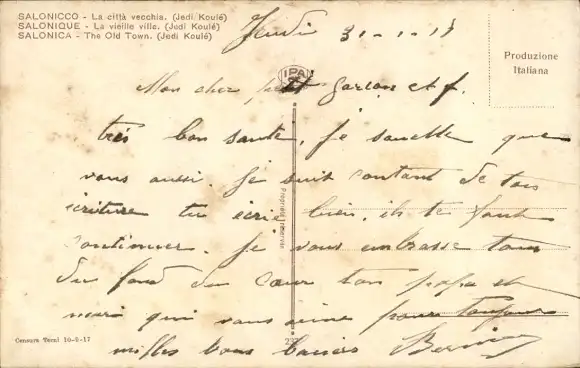 SALONICCO - La città vecchia. (Jedi Koulé)
SALONIQUE - La vieille ville. (Jedi Koulé)
SALONICA - The Old Town. (Jedi Koulé)
Jeudi 31-1-18
Produzione
Italiana
IPA
Mon cher petit Garcon et f.
très bon santé, Je souette que
vous aussi. Je suit contant de ton
écriture tu écrie bien, il te faut
continuer. Je vous embrasse tous
du fond du cœur ton papa et
mari qui vous aime pour toujours
milles bons baisers
Proprietà riservata
Censura Terni 10-2-17